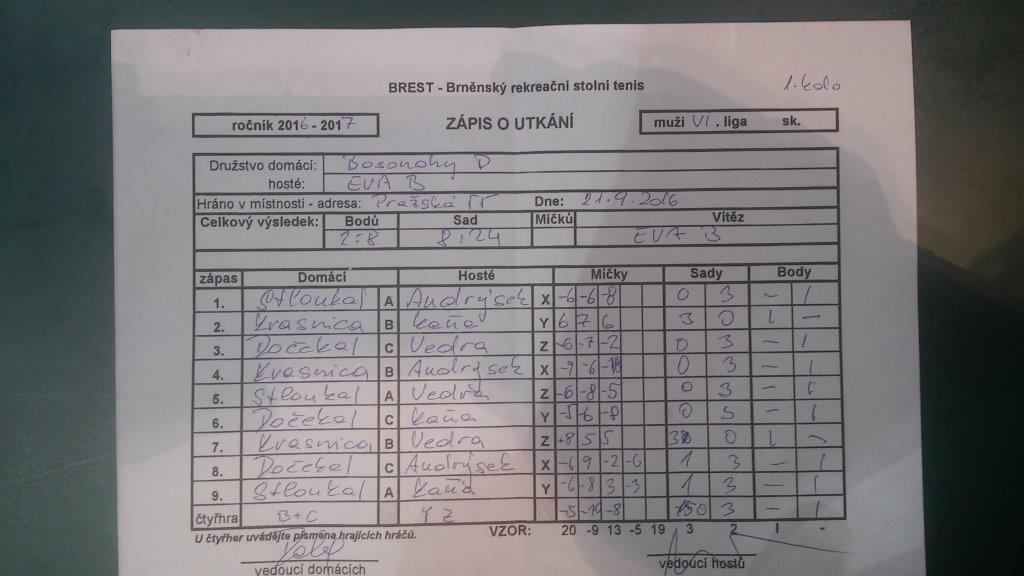 BREST - Brněnský rekreační stolní tenis
1. kolo
ročník 2016 - 2017 ZÁPIS O UTKÁNÍ muži VI. liga sk.
Družstvo domácí: Bosonohy D
hosté: EVA B
Hráno v místnosti - adresa: Pražská Dne: 21.9.2016
Celkový výsledek: Bodů Sad Míčků Vítěz
2:8 8:24 EVA B
zápas Domácí Hosté Míčky Sady Body
1. Stloukal A Andrýsek X -6 -6 -8 0 3 - 1
2. Krasnica B Kaňa Y 6 7 6 3 0 1 -
3. Dočekal C Vedra Z -6 -7 -2 0 3 - 1
4. Krasnica B Andrýsek X -9 -6 0 3 - 1
5. Stloukal A Vedra Z -6 -8 -5 0 3 - 1
6. Dočekal C Kaňa Y -5 -6 -8 0 3 - 1
7. Krasnica B Vedra Z +8 5 5 3 0 1 -
8. Dočekal C Andrýsek X -6 9 -2 -6 1 3 - 1
9. Stloukal A Kaňa Y -6 -8 3 -3 1 3 - 1
čtyřhra B+C Y Z -5 -10 -8 0 3 - 1
U čtyřher uvádějte písmena hrajících hráčů. VZOR: 20 -9 13 -5 19 3 2 1 -
vedoucí domácích vedoucí hostů